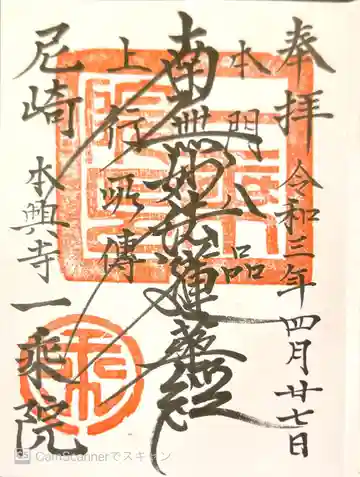 奉拝
令和三年四月廿七日
本門八品
南無妙法蓮華経
上行所傳
尼崎
本興寺
一乗院
CamScannerでスキャン